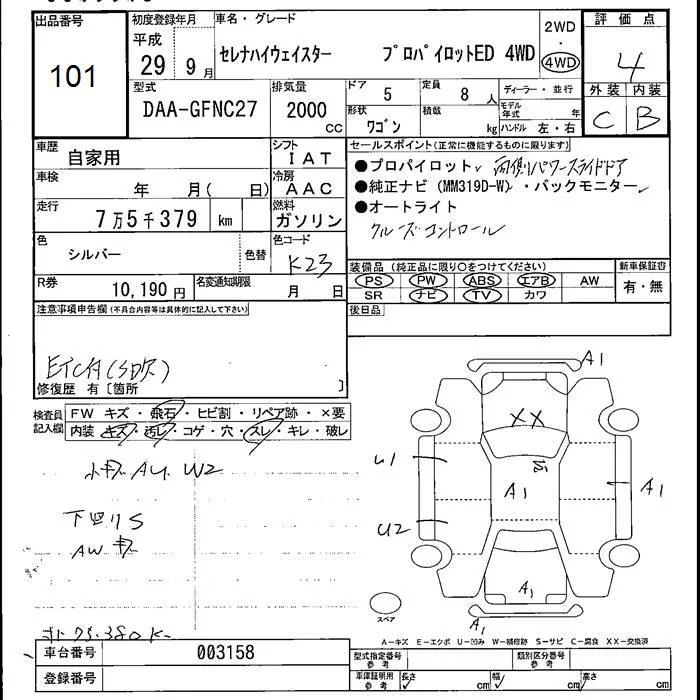 出品番号
101
初度登録年月
平成
29 9月
車名・グレード
セレナハイウェイスター プロパイロットED 4WD
2WD
・
4WD
評価点
4
外装 内装
C B
型式
DAA-GFNC27
排気量
2000
cc
ドア
5
定員
8 人
形状
ワゴン
積載
kg
ディーラー・並行
モデル年式 年
ハンドル 左・右
車歴
自家用
シフト
IAT
車検
年 月( 日)
冷房
AAC
走行
7万5千379 km
燃料
ガソリン
色
シルバー
色替
色コード
K23
R券
10,190 円
名変通知期限
月 日
セールスポイント(正常に機能するものに限ります)
●プロパイロット 両側パワースライドドア
●純正ナビ(MM319D-W)・バックモニター
●オートライト
クルーズコントロール
装備品(純正品に限り○をつけてください)
PS PW ABS エアB AW
SR ナビ TV カワ
新車保証書
有・無
後日品
注意事項申告欄(不具合内容等は具体的に記入して下さい)
ETC有(SD欠)
修復歴 有〔箇所 〕
検査員記入欄
FW キズ・飛石・ヒビ割・リペア跡・×要
内装 キズ・汚れ・コゲ・穴・スレ・キレ・破レ
小キズ AU W2
下回りS
AW キズ
75.380K
A1
XX
U1
U2
A1
A1
A1
A1
スペア
A-キズ E-エクボ U-凹み W-補修跡 S-サビ C-腐食 XX-交換済
車台番号
003158
登録番号
型式指定番号
参考
類別区分番号
参考
車庫証明用
参考
長さ cm 幅 cm 高さ cm